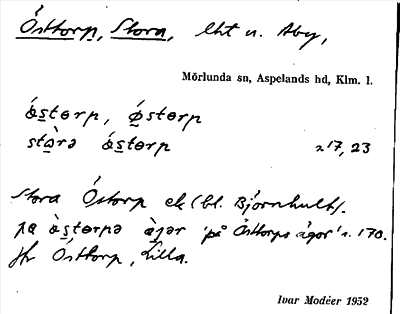 Östtorp, Stora, lht n. Aby,
Mörlunda sn, Aspelands hd, Klm. l.
ǿstɵrp, ǿstɵrp
stɑ̀rə ǿstɵrp n 17, 23
Stora Östorp ek (bl. Björnhult).
pa ø̀stɵrpə ø̀gər 'på Östtorps ägor' s. 170.
Jfr Östtorp, Lilla.
Ivar Modéer 1952